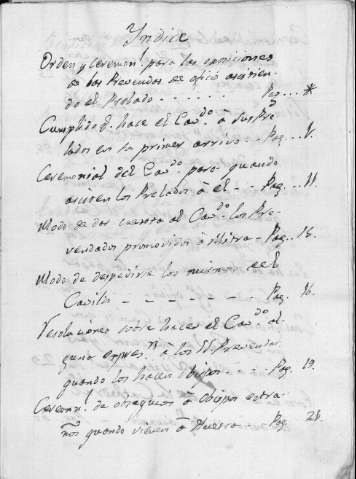 Yndice
Orden y Ceremon.l para las oposiciones
de las Prevendas de oficio asistien-
do el Prelado - - - - - Pag... *
Cumplido q.e hace el Cav.do a sus Pre
lados en su primer arrivo - Pag... 1.
Ceremonial del Cav.do para quando
asisten los Prelados á el - - Pag... 11.
Modo de dar cuenta al Cav.do los Pre-
vendados promovidos á Mitra - Pag... 15.
Modo de despedirse los mismos del
Cavildo - - - - - - - Pag. 16.
Resoluciones sobre hacer el Cav.do al
guna expres.n á los SS. Prevendados
quando los hacen Obispos - - - Pag. 19.
Ceremon.l de obsequios á Obispos estra-
ños quando vienen á Pag. 26.